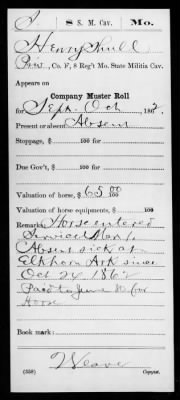 S | 8 S. M. Cav. | Mo.
Henry Shull
Priv, Co. F, 8 Reg't Mo. State Militia Cav.
Appears on
Company Muster Roll
for Sept. Oct, 1862.
Present or absent Absent
Stoppage, $ 100 for
Due Gov't, $ 100
Valuation of horse, $ 65 00/100
Valuation of horse equipments, $ 100
Remarks: Horse entered
Service Mar 1.
Absent sick at
Elkhorn Ark since
Oct 24, 1862
Paid to June 30 for
Horse
Book mark:
Weave
(358) Copyist.